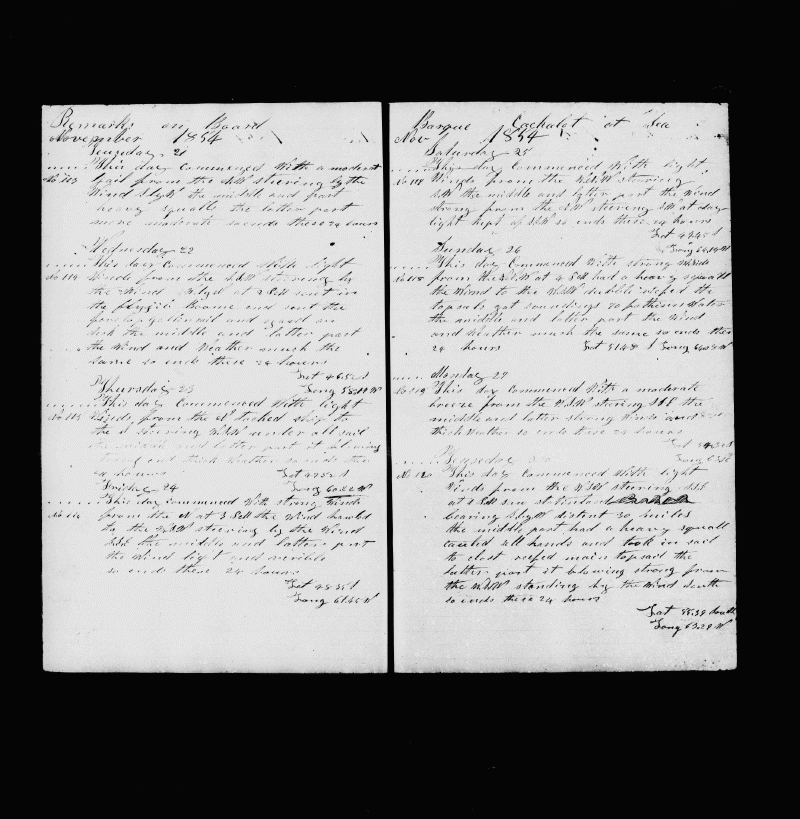 Remarks on Board
November 1854
Teusday 21
This day Commenced With a moderate
gail from the SW steering by the
Wind SbyW the middle and part
heavy squalls the latter part
more moderate so ends these 24 hours
Wednesday 22
This day Commenced With light
Winds from the SW steering by
the Wind at 2 PM sent in
the flying and sent the
fore topgallensail and yard on
deck the middle and latter part
the Wind and Weather much the
same so ends these 24 hours
Lat 46.52 S
Long W
Thursday 23
This day Commenced With light
Winds from the tacked ship to
the S steering WSW under all sail
the middle and latter part it blowing
strong and thick Weather so ends these
24 hours
Lat 47.52 S
Long 60.22 W
Friday 24
This day commenced With strong Winds
from the N at 3 PM the Wind hawled
to the WSW steering by the Wind
SSE the middle and latter part
the Wind light and
so ends these 24 hours
Lat 48.35 S
Long 61.46 W
Barque Cachalot at Sea
Nov 1854
Saturday 25
This day Commenced With light
Winds from the steering
SW the middle and latter part the Wind
strong from the steering SW at day
light kept of so ends these 24 hours
Lat 49.45 S
Long W
Sunday 26
This day Commenced With strong Winds
from the at 4 PM had a heavy squall
the Wind to the WSW double reefed the
topsails got soundings 70 fathems Water
the middle and latter part the Wind
and Weather much the same so ends these
24 hours Lat 51.48 S Long W
Monday 27
This day Commenced With a moderate
breeze from the WSW steering SSE the
middle and latter strong Winds and
thick Weather so ends these 24 hours
Lat S
Long
Teusday
No 120 This day Commenced With light
Winds from the WSW steering SSE
at 1 PM saw
bearing SbyW distent 30 miles
the middle part had a heavy squall
called all hands and took in sail
to close reefed main topsail the
latter part it blowing strong from
the WSW standing by the Wind South
so ends these 24 hours
Lat 55.39 South
Long 63.29 W